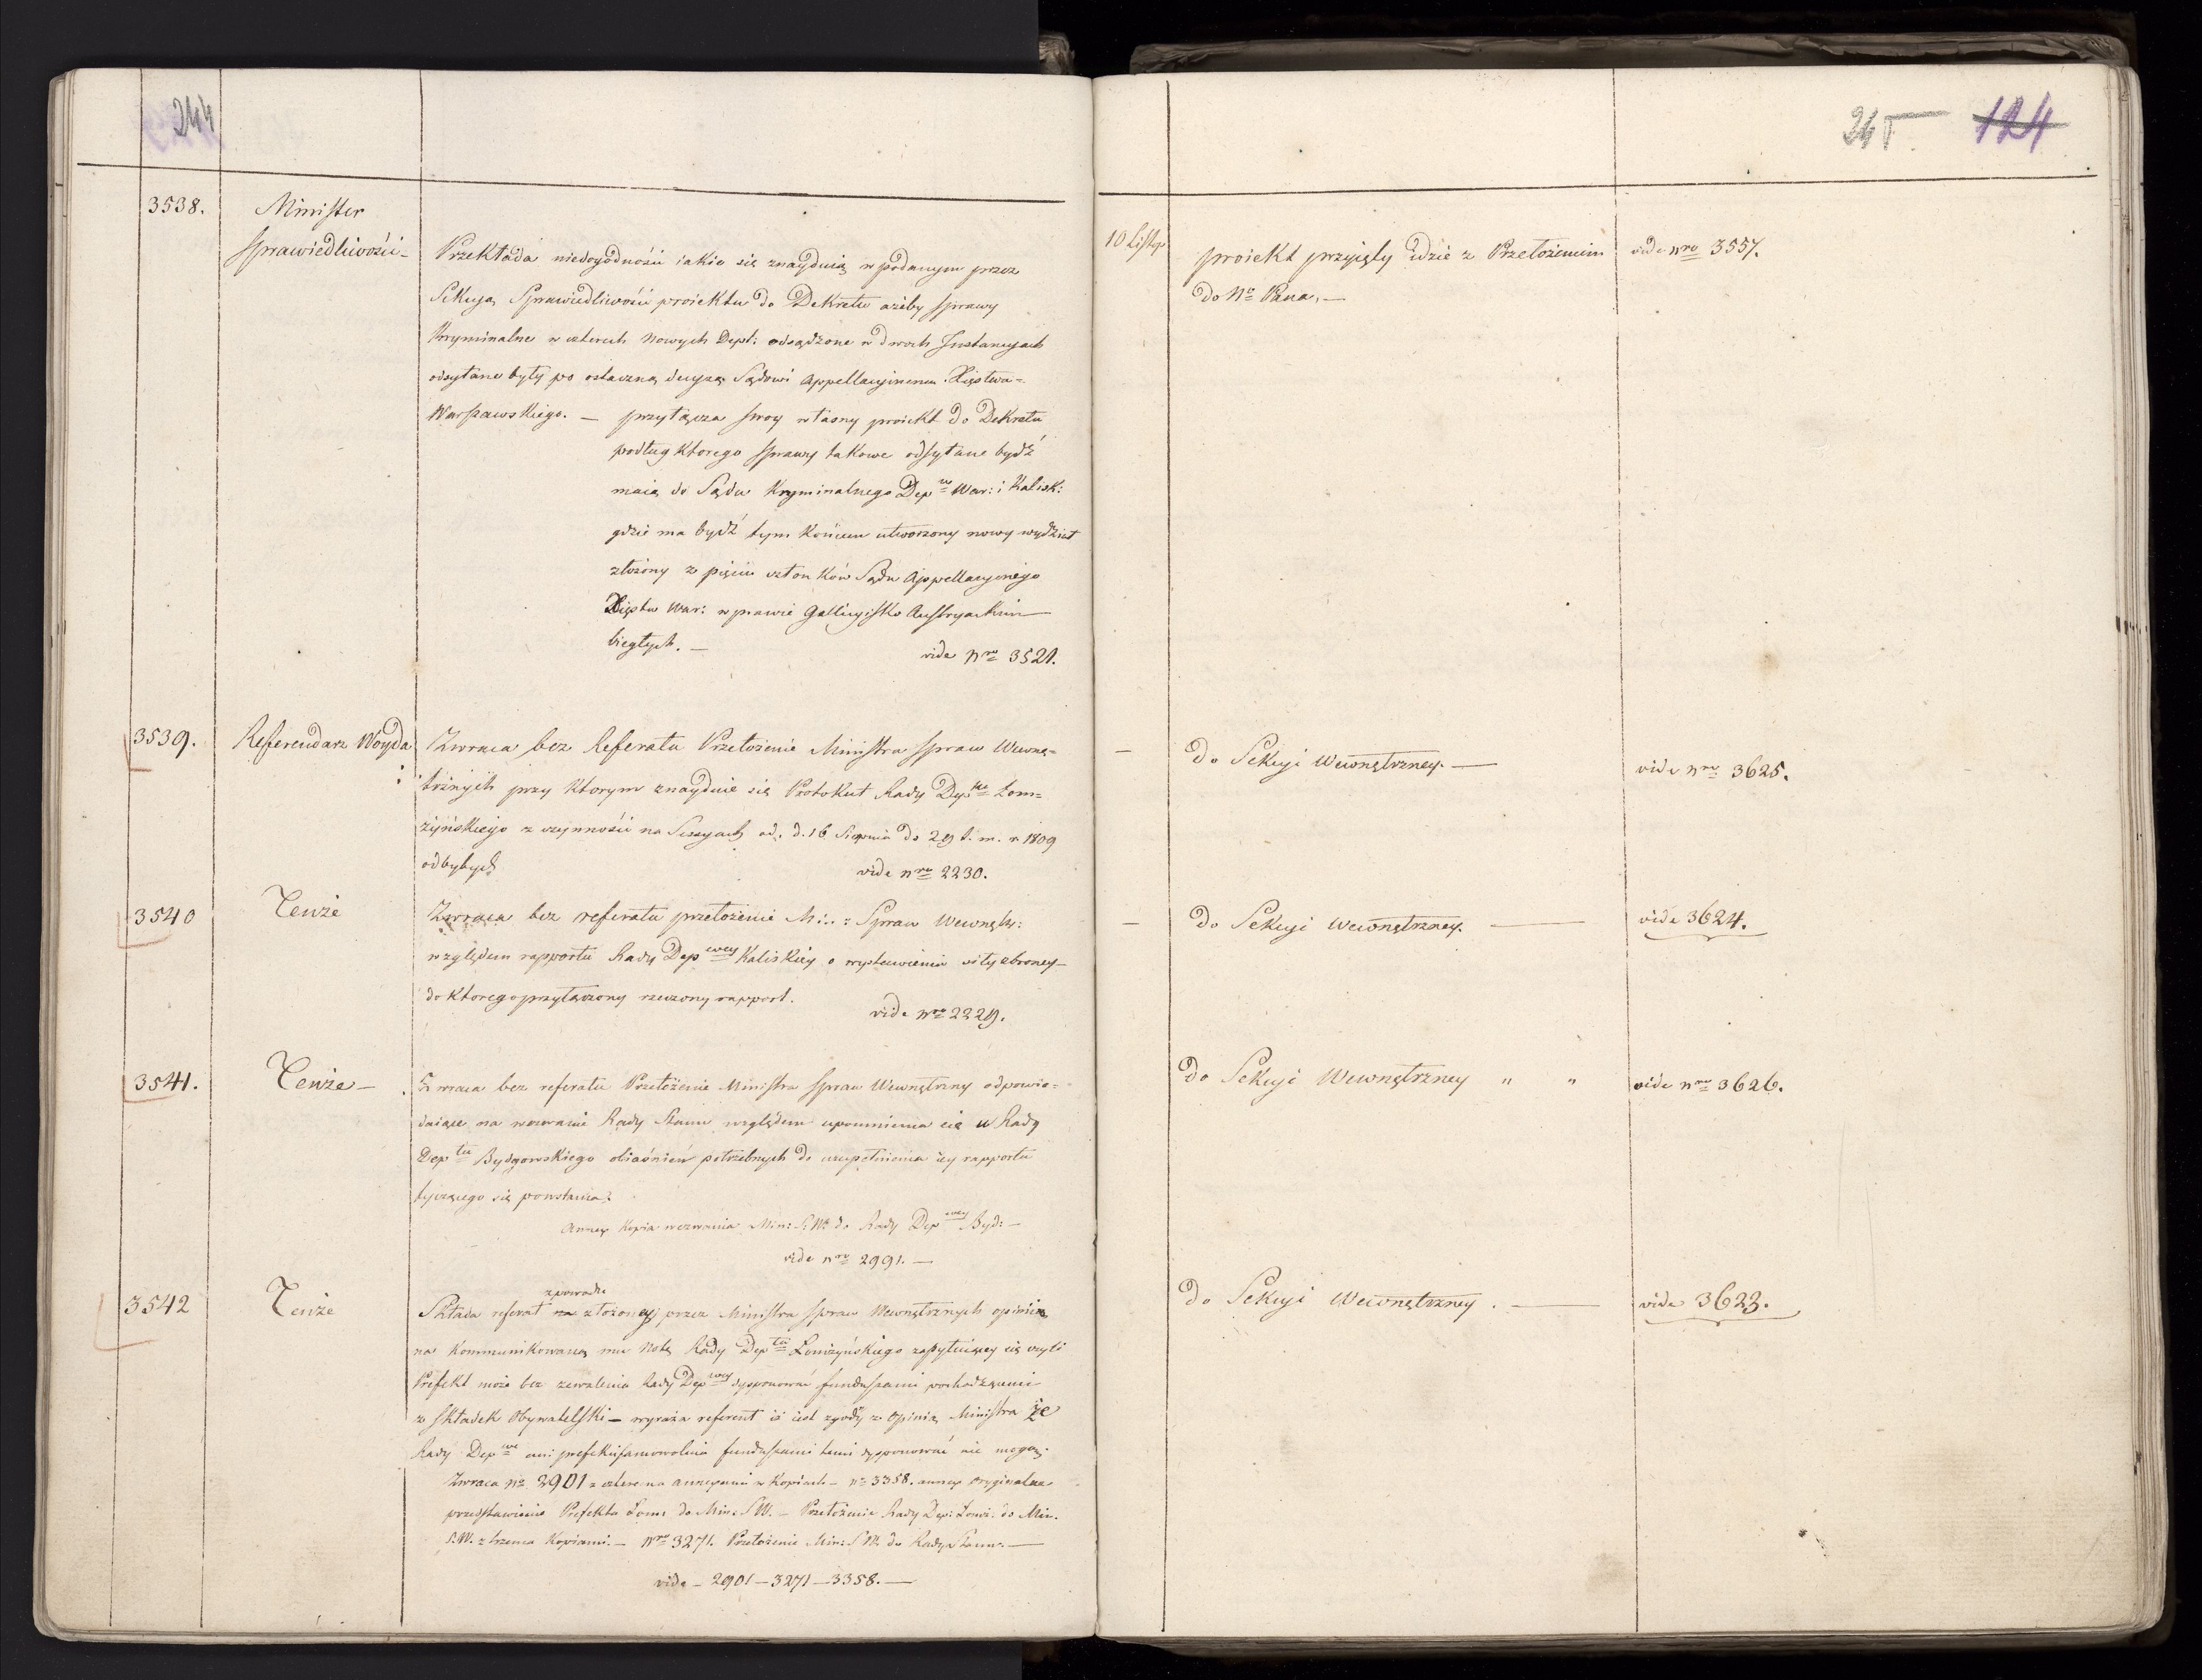 244
3538.
Minister
Sprawiedliwości-
Przekłada niedogodności iakie się znayduią w podanym przez
Sekcyą Sprawiedliwości proiektu do Dekretu ażeby sprawy
Kryminalne w czterech Nowych Dept: odsądzone w dwoch Instancyach
odsyłane były po ostaczną decyzą Sądowi Appellacyinemu Xięstwa=
Warszawskiego. — przyłącza swoy własny proiekt do Dekretu
podług ktorego sprawy takowe odsyłane bydź
maią do Sądu Kryminalnego Dep War: i Kalisk:
gdzie ma bydź tym końcem utworzony nowy wydział
złożony z pięciu członków Sądu Appellacyinego
Xięstw War: w prawie Gallicyisko Austryackim
biegłych. —
vide Nro 3521.
3539.
Referendarz Woyda
Zwraca bez Referatu Przełożenie Ministra spraw Wewnę=
trznych przy ktorym znayduie się Protokuł Rady Dep Łom=
żyńskiego z czynności na Sessyach od. d. 16 Sierpnia do 29 t. m. r 1809
odbytych
vide nro 2230.
3540
Tenże
Zwraca bez referatu przełożenie M:..: Spraw Wewnętr:
względem rapportu Rady Dep owey Kaliskiey o wystawieniu siły zbroney—
do ktorego przyłączony rzeczony rapport.
vide nro 2229.
3541.
Tenże —
Zwraca bez referatu Przełożenie Ministra spraw Wewnętrzny odpowia=
daiące na wezwanie Rady Stanu względem upomnienia się u Rady
Dep tu Bydgowskiego obiaśnień potrzebnych do uzupełnienia iey rapportu
tyczącego się powstania.
Annex Kopia wezwania Min: S: W: do Rady Dep owey Byd: —
vide nro 2991. —
3542
Tenże
z powodu
Składa referat na złożoney przez Ministra spraw Wewnętrznych opinii
na kommunikowaną mu Notę Rady Dep tu Łomżyńskiego zapytuiącey się czyli
Prefekt może bez zezwolenia Rady Dep owey dysponować funduszami pochodzącemi
z składek Obywatelski — wyraża referent iż iest zgodny z opinią Ministra że
Rady Dep we ani prefekci samowolnie funduszami temi dysponować nie mogą.
Zwraca No 2901 z czterema annexami w Kopiach — no 3358. annex oryginalne
przedstawienie Prefekta Łomż do Min: S W. — Przełożenie Rady Dep: Łomż: do Min.
S. W. z trzema Kopiami. — Nro 3271. Przełożenie Min: S W. do Rady Stanu. —
vide — 2901 — 3271 — 3358. —
245 124
10 Listop
proiekt przyięty idzie z Przełożeniem
do No Pana. —
vide nro 3557.
— do Sekcyi Wewnętrzney. —
vide nro 3625.
— do Sekcyi Wewnętrzney. —
vide 3624.
do Sekcyi Wewnętrzney " "
vide nro 3626.
do Sekcyi Wewnętrzney. —
vide 3623.